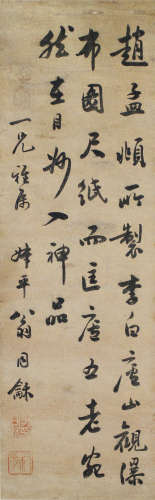 趙孟頫所製李白廬山觀瀑
布圖尺紙而匡廬五老宛
然在目妙入神品
一兄雅屬
叔平翁同龢